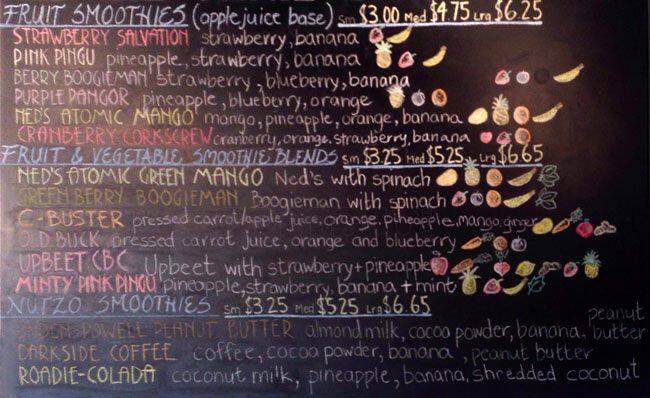 FRUIT SMOOTHIES (apple juice base) Sm $3.00 Med $4.75 Lrg $6.25
STRAWBERRY SALVATION strawberry, banana
PINK PINGU pineapple, strawberry, banana
BERRY BOOGIEMAN strawberry, blueberry, banana
PURPLE DANGOR pineapple, blueberry, orange
NED'S ATOMIC MANGO mango, pineapple, orange, banana
CRANBERRY CORKSCREW cranberry, orange, strawberry, banana
FRUIT & VEGETABLE SMOOTHIE BLENDS Sm $3.25 Med $5.25 Lrg $6.65
NED'S ATOMIC GREEN MANGO Ned's with spinach
GREEN BERRY BOOGIEMAN Boogieman with spinach
C-BUSTER pressed carrot/apple juice, orange, pineapple, mango, ginger
OLD BUCK pressed carrot juice, orange and blueberry
UPBEET CBC Upbeet with strawberry + pineapple
MINTY PINK PINGU pineapple, strawberry, banana + mint
NUTZO SMOOTHIES Sm $3.25 Med $5.25 Lrg $6.65
POWELL PEANUT BUTTER almond milk, cocoa powder, banana, peanut butter
DARKSIDE COFFEE coffee, cocoa powder, banana, peanut butter
ROADIE-COLADA coconut milk, pineapple, banana, shredded coconut